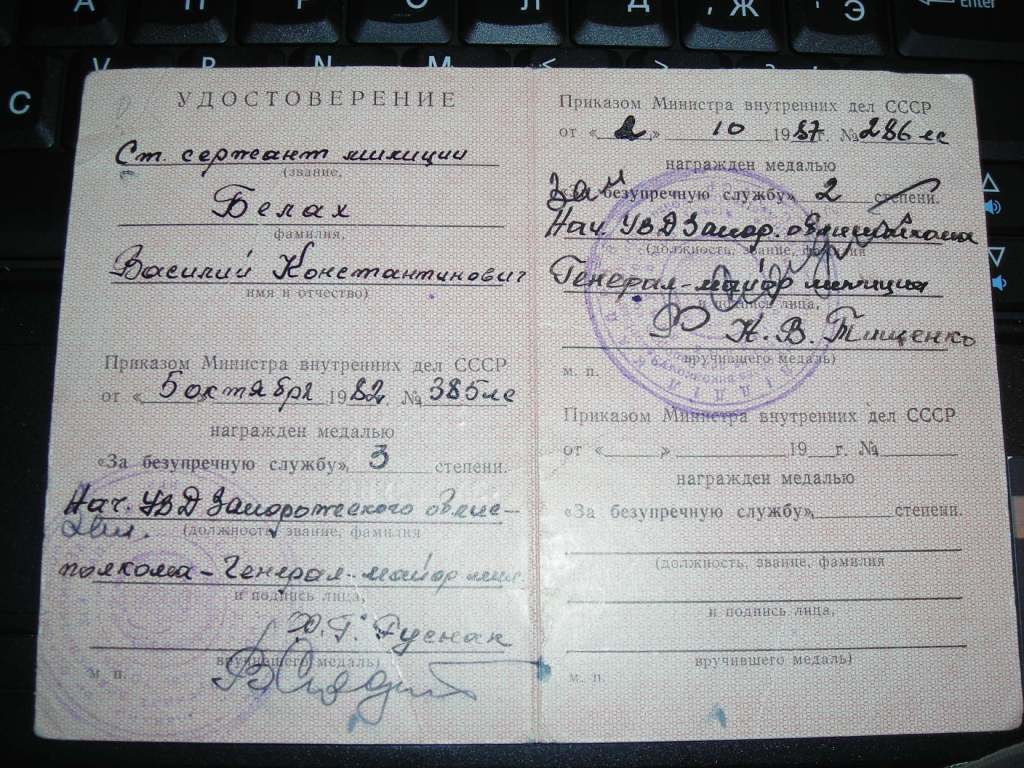 УДОСТОВЕРЕНИЕ
Ст. сержант милиции
(звание,
Белах
фамилия,
Василий Константинович
имя и отчество)
Приказом Министра внутренних дел СССР
от « 5 октября 1982. № 385лс
награжден медалью
«За безупречную службу», 3 степени.
Нач. УВД Запорожского облис-
(должность, звание, фамилия
полкома - Генерал-майор мил.
и подпись лица,
Руснак
вручившего медаль)
м. п.
Приказом Министра внутренних дел СССР
от « 2 » 10 1987г. № 286лс
награжден медалью
«За безупречную службу» 2 степени.
Нач. УВД Запор. облисполкома
(должность, звание, фамилия
Генерал-майор милиции
и подпись лица,
К. В. Тищенко
вручившего медаль)
м. п.
Приказом Министра внутренних дел СССР
от « » 19 г. №
награжден медалью
«За безупречную службу», степени.
(должность, звание, фамилия
и подпись лица,
вручившего медаль)
м. п.